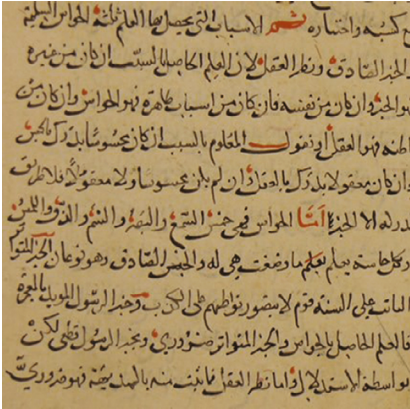 مع كسبه واختياره ثم الاسباب التي يحصل بها العلم ثلثة الحواس السليمة
والخبر الصادق ونظر العقل لان العلم الحاصل بالسبب ان كان من غيره
فهو الخبر وان كان من نفسه فان كان من اسباب ظاهرة فهو الحواس وان كان من
باطنه فهو العقل او نقول المعلوم بالسبب ان كان محسوسا يدرك بالحس
وان كان معقولا يدرك بالعقل وان لم يكن محسوسا ولا معقولا فلا طريق
لدركه الا الخبر اما الحواس فهي خمس السمع والبصر والشم والذوق واللمس
وكل حاسة يعلم بها ما وضعت هي له والخبر الصادق وهو نوعان الخبر المتواتر
الثابت على السنة قوم لا يتصور تواطئهم على الكذب وخبر الرسول المؤيد بالمعجزة
فالعلم الحاصل بالحواس والخبر المتواتر ضروري وبخبر الرسول قطعي لكن
بواسطة الاستدلال واما نظر العقل فما ثبت منه بالبديهة فهو ضروري